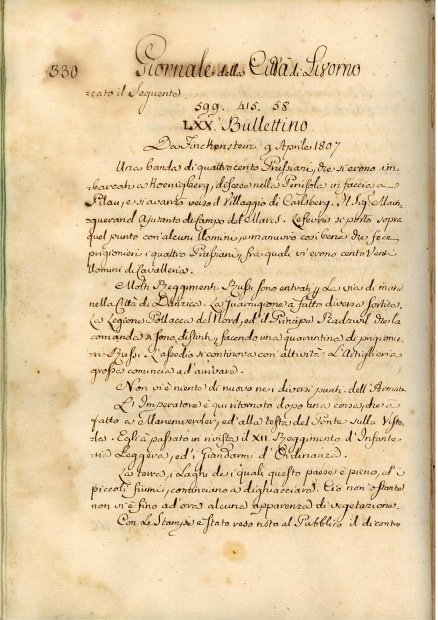 330 Giornale della Città di Livorno
=cato il Seguente
599. 415. 58
LXX. Bullettino
Da Finchenstein 9 Aprile 1807
Una banda di quattrocento Prussiani, che si erono im=
barcati a Koenigsberg, discesa nella Penisola in faccia a
Pilau, e si avanzò verso il Villaggio di Carlsberg. Il Sig.
querand Ajutante di Campo del Maresc. Lefevre si portò sopra
quel punto con alcuni Uomini, e manuvrò così bene che fece
prigionieri i quattro Prussiani, fra quali vi erono cento Venti
Uomini di Cavalleria.
Molti Reggimenti Russi sono entrati p. La via di mare
nella Città di Danzica. La Guarnigione à fatto diverse sortite.
La Legione Pollacca del Nord, ed il Principe Radzivil che la
comanda si sono distinti, facendo una quarantina di prigionie
=ri Russi. L'assedio si continova con attività. L'Artiglieria
grossa comincia ad arrivare.
Non vi è niente di nuovo nei diversi punti dell'Armata
L'Imperatore è qui ritornato dopo una corsa, che à
fatto a Marienwerder, ed alla testa del Ponte sulla Visto
la. Egli à passato in rivista il XII Reggimento d'Infante
=ria Leggera, ed i Giandarmi d'Ordinanza.
La terra, i Laghi de i quali questo paese è pieno, ed i
piccoli fiumi, continciano a dighiacciarsi. Ciò non ostante
non vi è fino ad ora alcuna apparenza di vegetazione.
Con le Stampe è stato reso noto al Pubblico il di contro